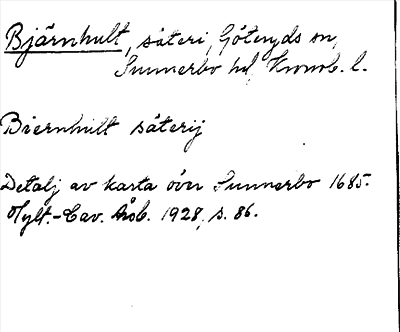 Bjärnhult, säteri, Göteryds sn,
Sunnerbo hd, Kronob. l.
Biernhult säterij
Detalj av karta över Sunnerbo 1685.
Hylt.-Cav. Årsb. 1928, s. 86.